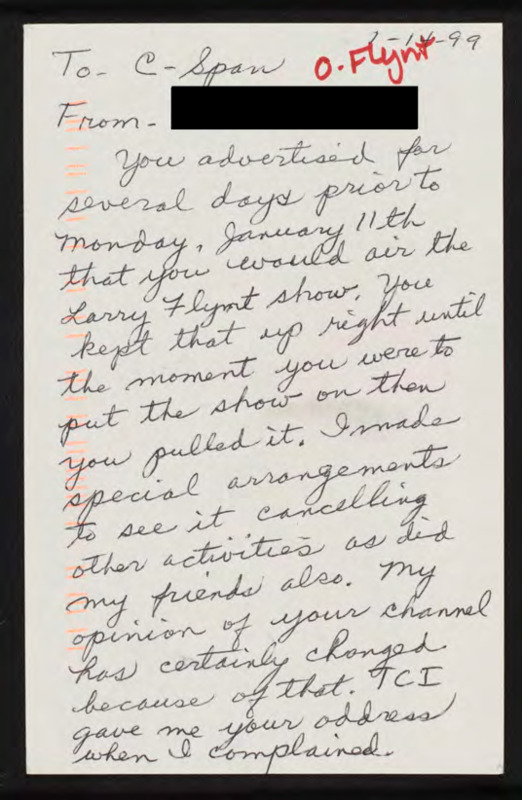 -14-99
To- C-Span O. Flynt
From-
You advertised for
several days prior to
Monday, January 11th
that you would air the
Larry Flynt show. You
kept that up right until
the moment you were to
put the show on then
you pulled it. I made
special arrangements
to see it cancelling
other activities as did
my friends also. My
opinion of your channel
has certainly changed
because of that. TCI
gave me your address
when I complained.